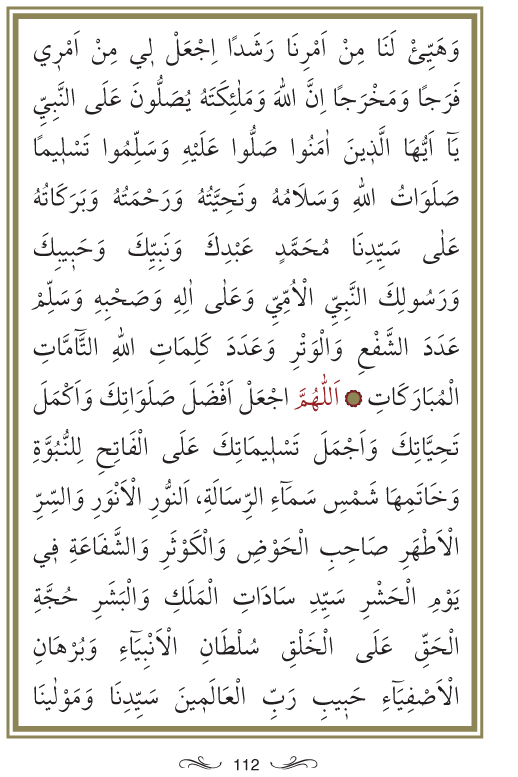 وَهَيِّئْ لَنَا مِنْ اَمْرِنَا رَشَدًا اِجْعَلْ لِي مِنْ اَمْرِي
فَرَجًا وَمَخْرَجًا اِنَّ اللهَ وَمَلٰئِكَتَهُ يُصَلُّونَ عَلَى النَّبِيِّ
يَآ اَيُّهَا الَّذِينَ اٰمَنُوا صَلُّوا عَلَيْهِ وَسَلِّمُوا تَسْلِيمًا
صَلَوَاتُ اللهِ وَسَلَامُهُ وتَحِيَّتُهُ وَرَحْمَتُهُ وَبَرَكَاتُهُ
عَلٰى سَيِّدِنَا مُحَمَّدٍ عَبْدِكَ وَنَبِيِّكَ وَحَبِيبِكَ
وَرَسُولِكَ النَّبِيِّ الْاُمِّيِّ وَعَلٰى اٰلِهِ وَصَحْبِهِ وَسَلِّمْ
عَدَدَ الشَّفْعِ وَالْوَتْرِ وَعَدَدَ كَلِمَاتِ اللهِ التَّآمَّاتِ
الْمُبَارَكَاتِ ۝ اَللّٰهُمَّ اجْعَلْ اَفْضَلَ صَلَوَاتِكَ وَاَكْمَلَ
تَحِيَّاتِكَ وَاَجْمَلَ تَسْلِيمَاتِكَ عَلَى الْفَاتِحِ لِلنُّبُوَّةِ
وَخَاتَمِهَا شَمْسِ سَمَآءِ الرِّسَالَةِ، اَلنُّورِ الْاَنْوَرِ وَالسِّرِّ
الْاَطْهَرِ صَاحِبِ الْحَوْضِ وَالْكَوْثَرِ وَالشَّفَاعَةِ فِي
يَوْمِ الْحَشْرِ سَيِّدِ سَادَاتِ الْمَلَكِ وَالْبَشَرِ حُجَّةِ
الْحَقِّ عَلَى الْخَلْقِ سُلْطَانِ الْاَنْبِيَآءِ وَبُرْهَانِ
الْاَصْفِيَآءِ حَبِيبِ رَبِّ الْعَالَمِينَ سَيِّدِنَا وَمَوْلٰينَا
112